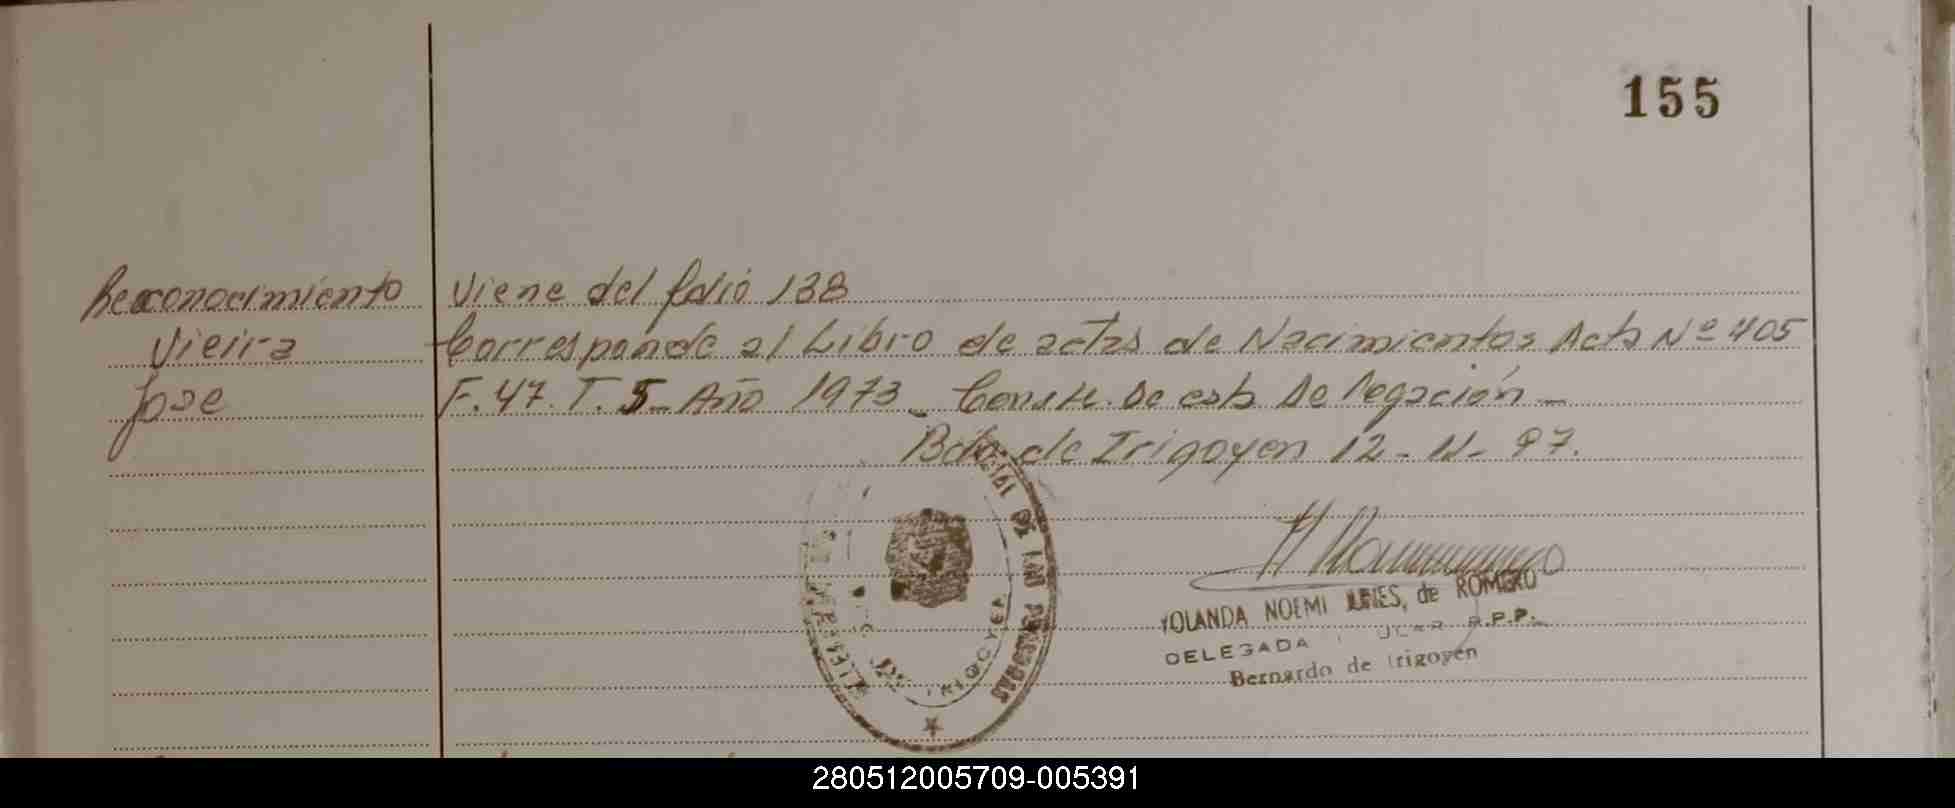 155
Reconocimiento
Viene del folio 138
Vieira
Corresponde al Libro de actas de Nacimientos Acta Nº 405
Jose
F. 47. T. 5 - Año 1973 - De esta Delegación -
Bdo de Irigoyen 12 - 97.
DE LAS PERSONAS
IRIGOYEN
YOLANDA NOEMI de ROMERO
DELEGADA R.P.P.
Bernardo de Irigoyen
280512005709-005391